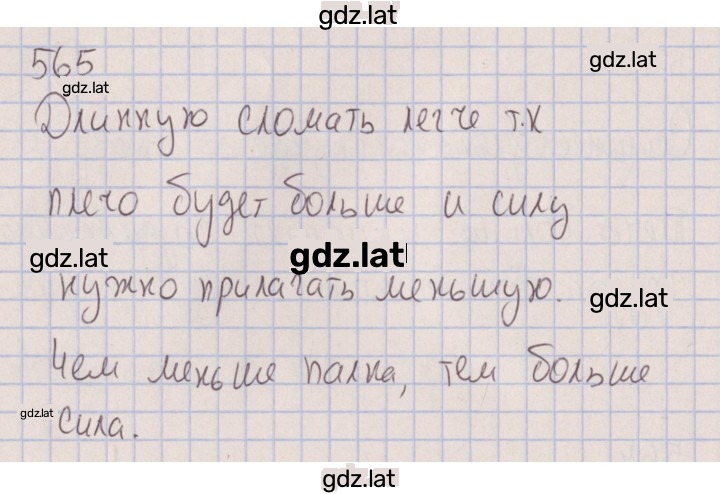 gdz.lat
565
gdz.lat
gdz.lat
Длинную сломать легче т.к
плечо будет больше и силу
gdz.lat
gdz.lat
нужно прилагать меньшую.
gdz.lat
Чем меньше палка, тем больше
gdz.lat
сила.
gdz.lat